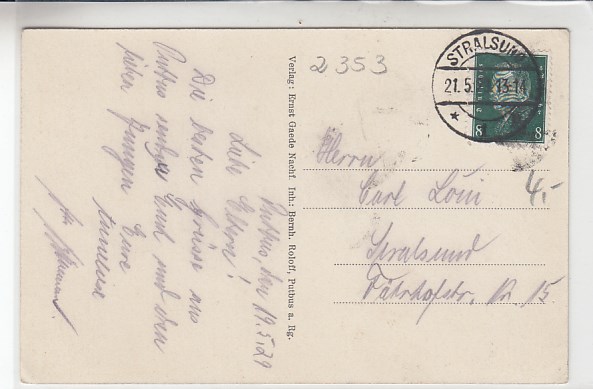 Putbus, den 19.5.29
Liebe Eltern!
Die besten Grüße aus
Putbus sendet Euch und den
lieben Jungen Eure
Verlag: Ernst Gaede Nachf. Inh: Bernh. Roloff, Putbus a. Rg.
2353
STRALSUND
21.5. 13-14
8 8
Herrn
Carl
Stralsund
Fährhofstr. Nr. 15
4.-